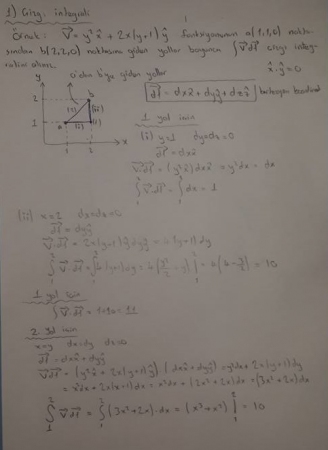 1) Çizg. integrali
Örnek: V⃗ = y² x̂ + 2x(y+1) ŷ fonksiyonunun a(1,1,0) nokta-
sından b(2,2,0) noktasına giden yollar boyunca ∫V⃗ dl⃗ çizgi integ-
ralini alınız.
x̂·ŷ = 0
a'dan b'ye giden yollar
dl⃗ = dx x̂ + dy ŷ + dz ẑ
kartezyen koordinat
y
2
1
a
b
(2)
(i)
(ii)
(1)
1
2
x
1. yol için
(i) y=1 dy=dz=0
dl⃗ = dx x̂
V⃗ dl⃗ = (y² x̂) dx x̂ = y² dx = dx
∫V⃗ dl⃗ = ∫dx = 1
(ii) x=2 dx=dz=0
dl⃗ = dy ŷ
V⃗ dl⃗ = 2x(y+1) ŷ dy ŷ = 4(y+1) dy
1. yol için
∫V⃗ dl⃗ = 1+10 = 11
2. yol için
x=y dx=dy dz=0
dl⃗ = dx x̂ + dy ŷ
V⃗ dl⃗ = (y² x̂ + 2x(y+1) ŷ) (dx x̂ + dy ŷ) = y² dx + 2x(y+1) dy
= x² dx + 2x(x+1) dx = x² dx + (2x² + 2x) dx = (3x² + 2x) dx
∫₁² V⃗ dl⃗ = ∫₁² (3x² + 2x) dx = (x³ + x²) |₁² = 10